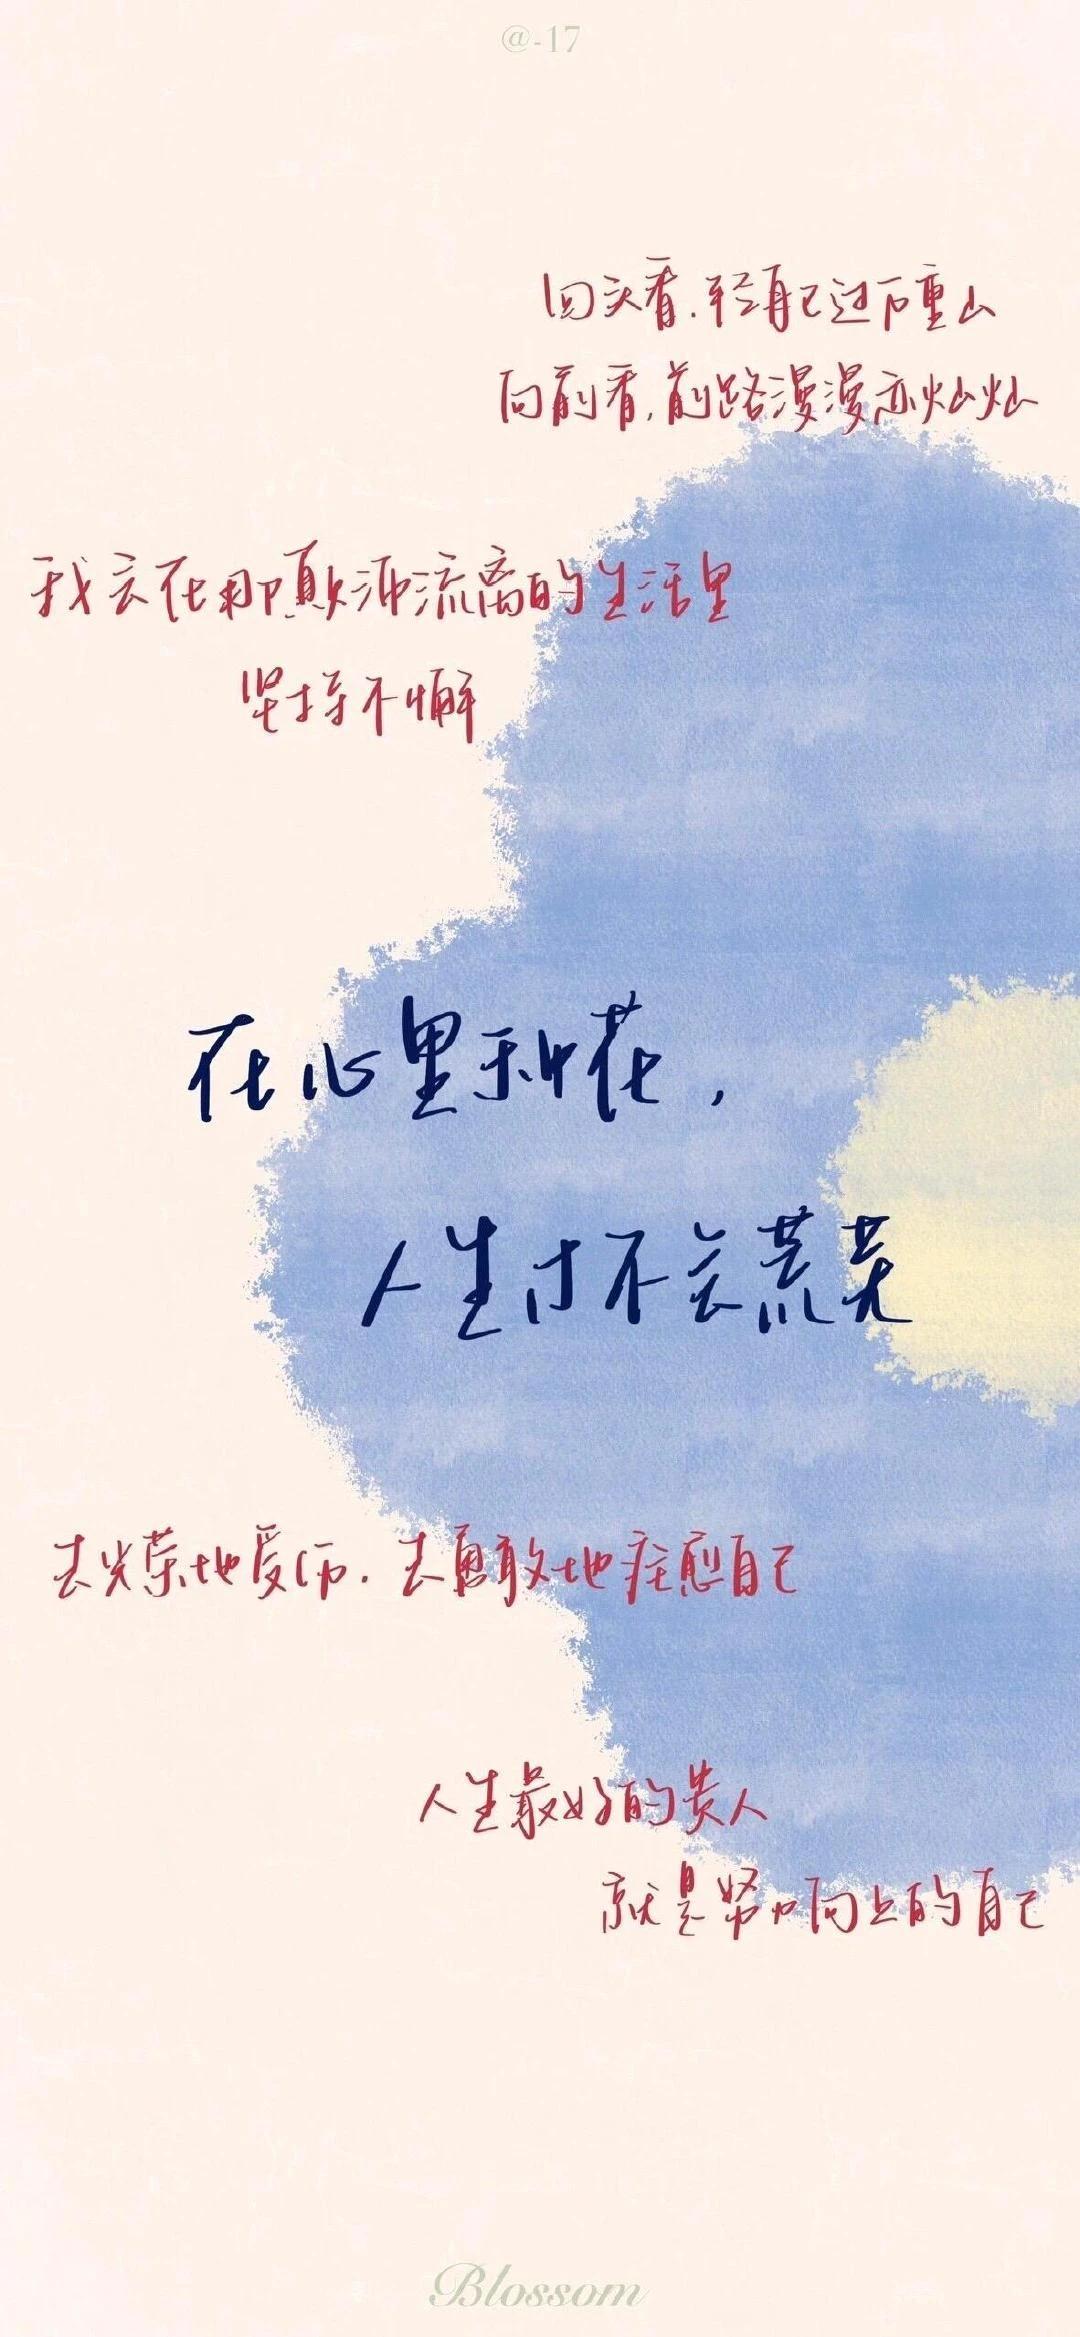 @-17
回头看,轻舟已过万重山
向前看,前路漫漫亦灿灿
我会在那颠沛流离的生活里
坚持不懈
在心里种花,
人生才不会荒芜
去光荣地受伤,去勇敢地痊愈自己
人生最好的贵人
就是努力向上的自己
Blossom